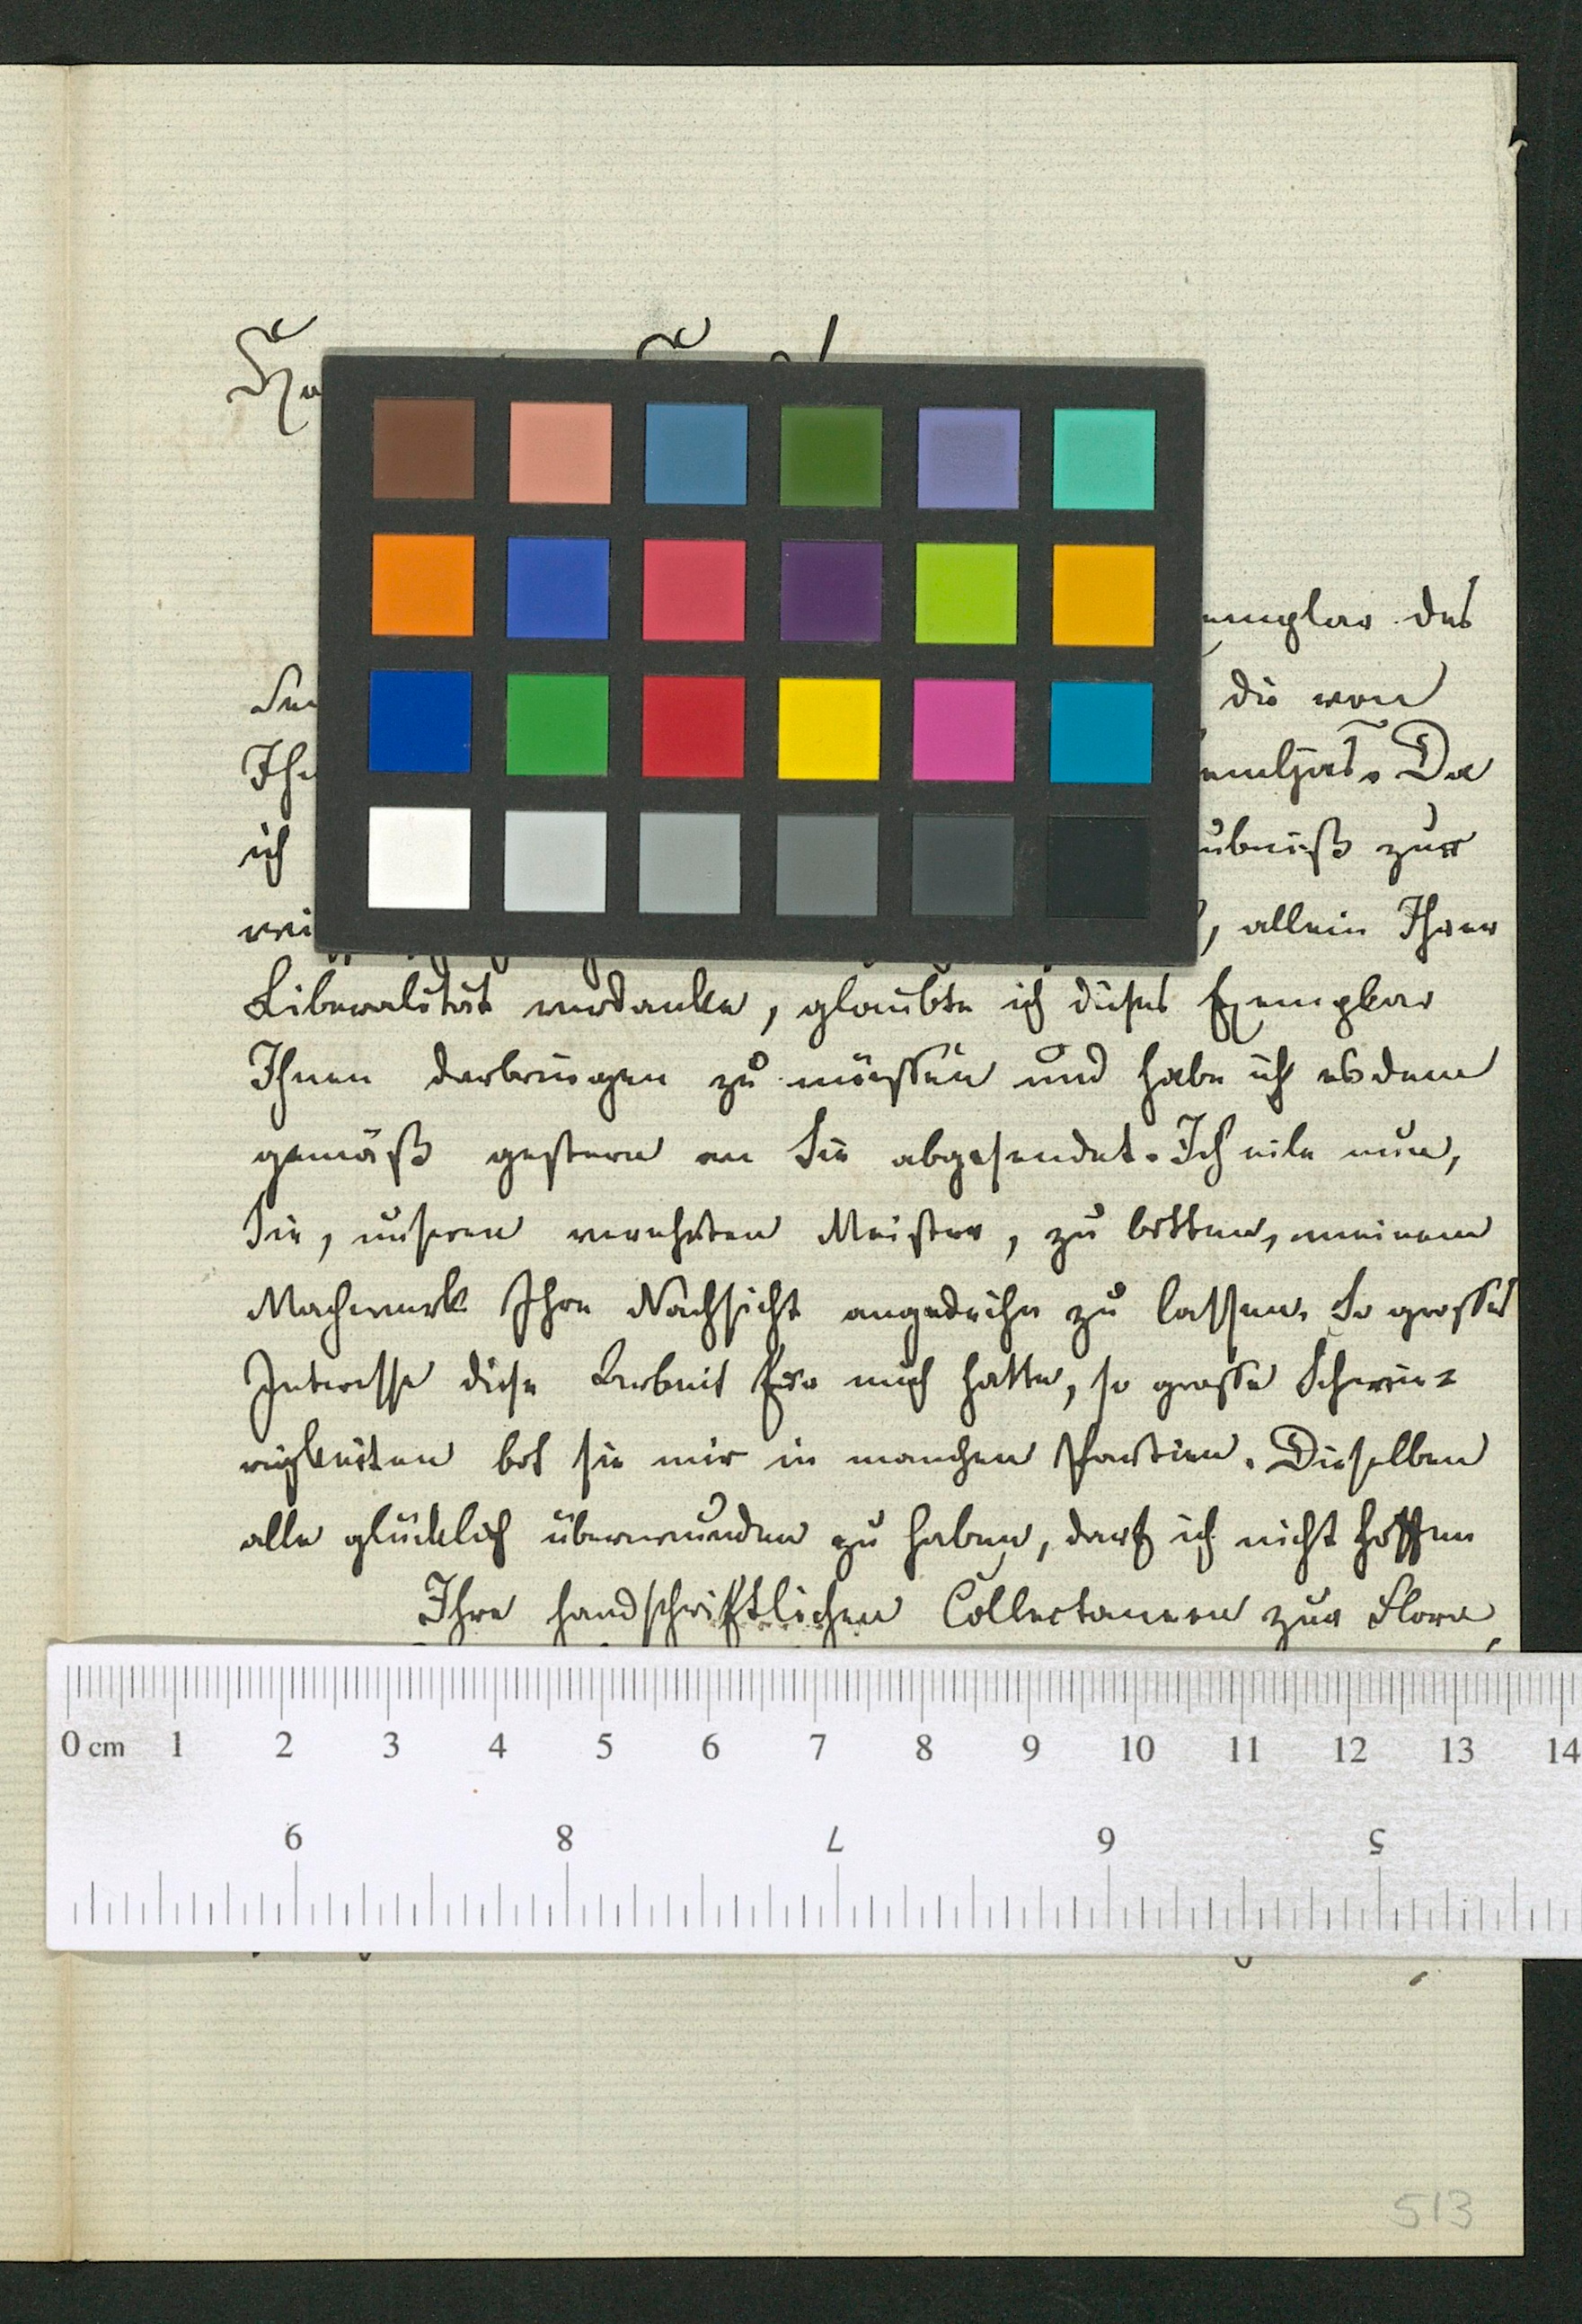 des
die von
Da
ich
zur
, allein Ihrer
Liberalität verdanke, glaubte ich dieses Exemplar
Ihnen darbringen zu müssen und habe ich es dem
gemäß gestern an Sie abgesendet. Ich eile nun,
Sie, unseren verehrten Meister, zu bitten, meinem
Machwerk Ihre Nachsicht angedeihn zu lassen. So grosses
Interesse diese Arbeit für mich hatte, so grosse Schwie=
rigkeiten bot sie mir in manchen Partien. Dieselben
alle glücklich überwunden zu haben, darf ich nicht hoffen
Ihre handschriftlichen Collectaneen zur Flora
0 cm 1 2 3 4 5 6 7 8 9 10 11 12 13 14
9 8 7 6 5
513